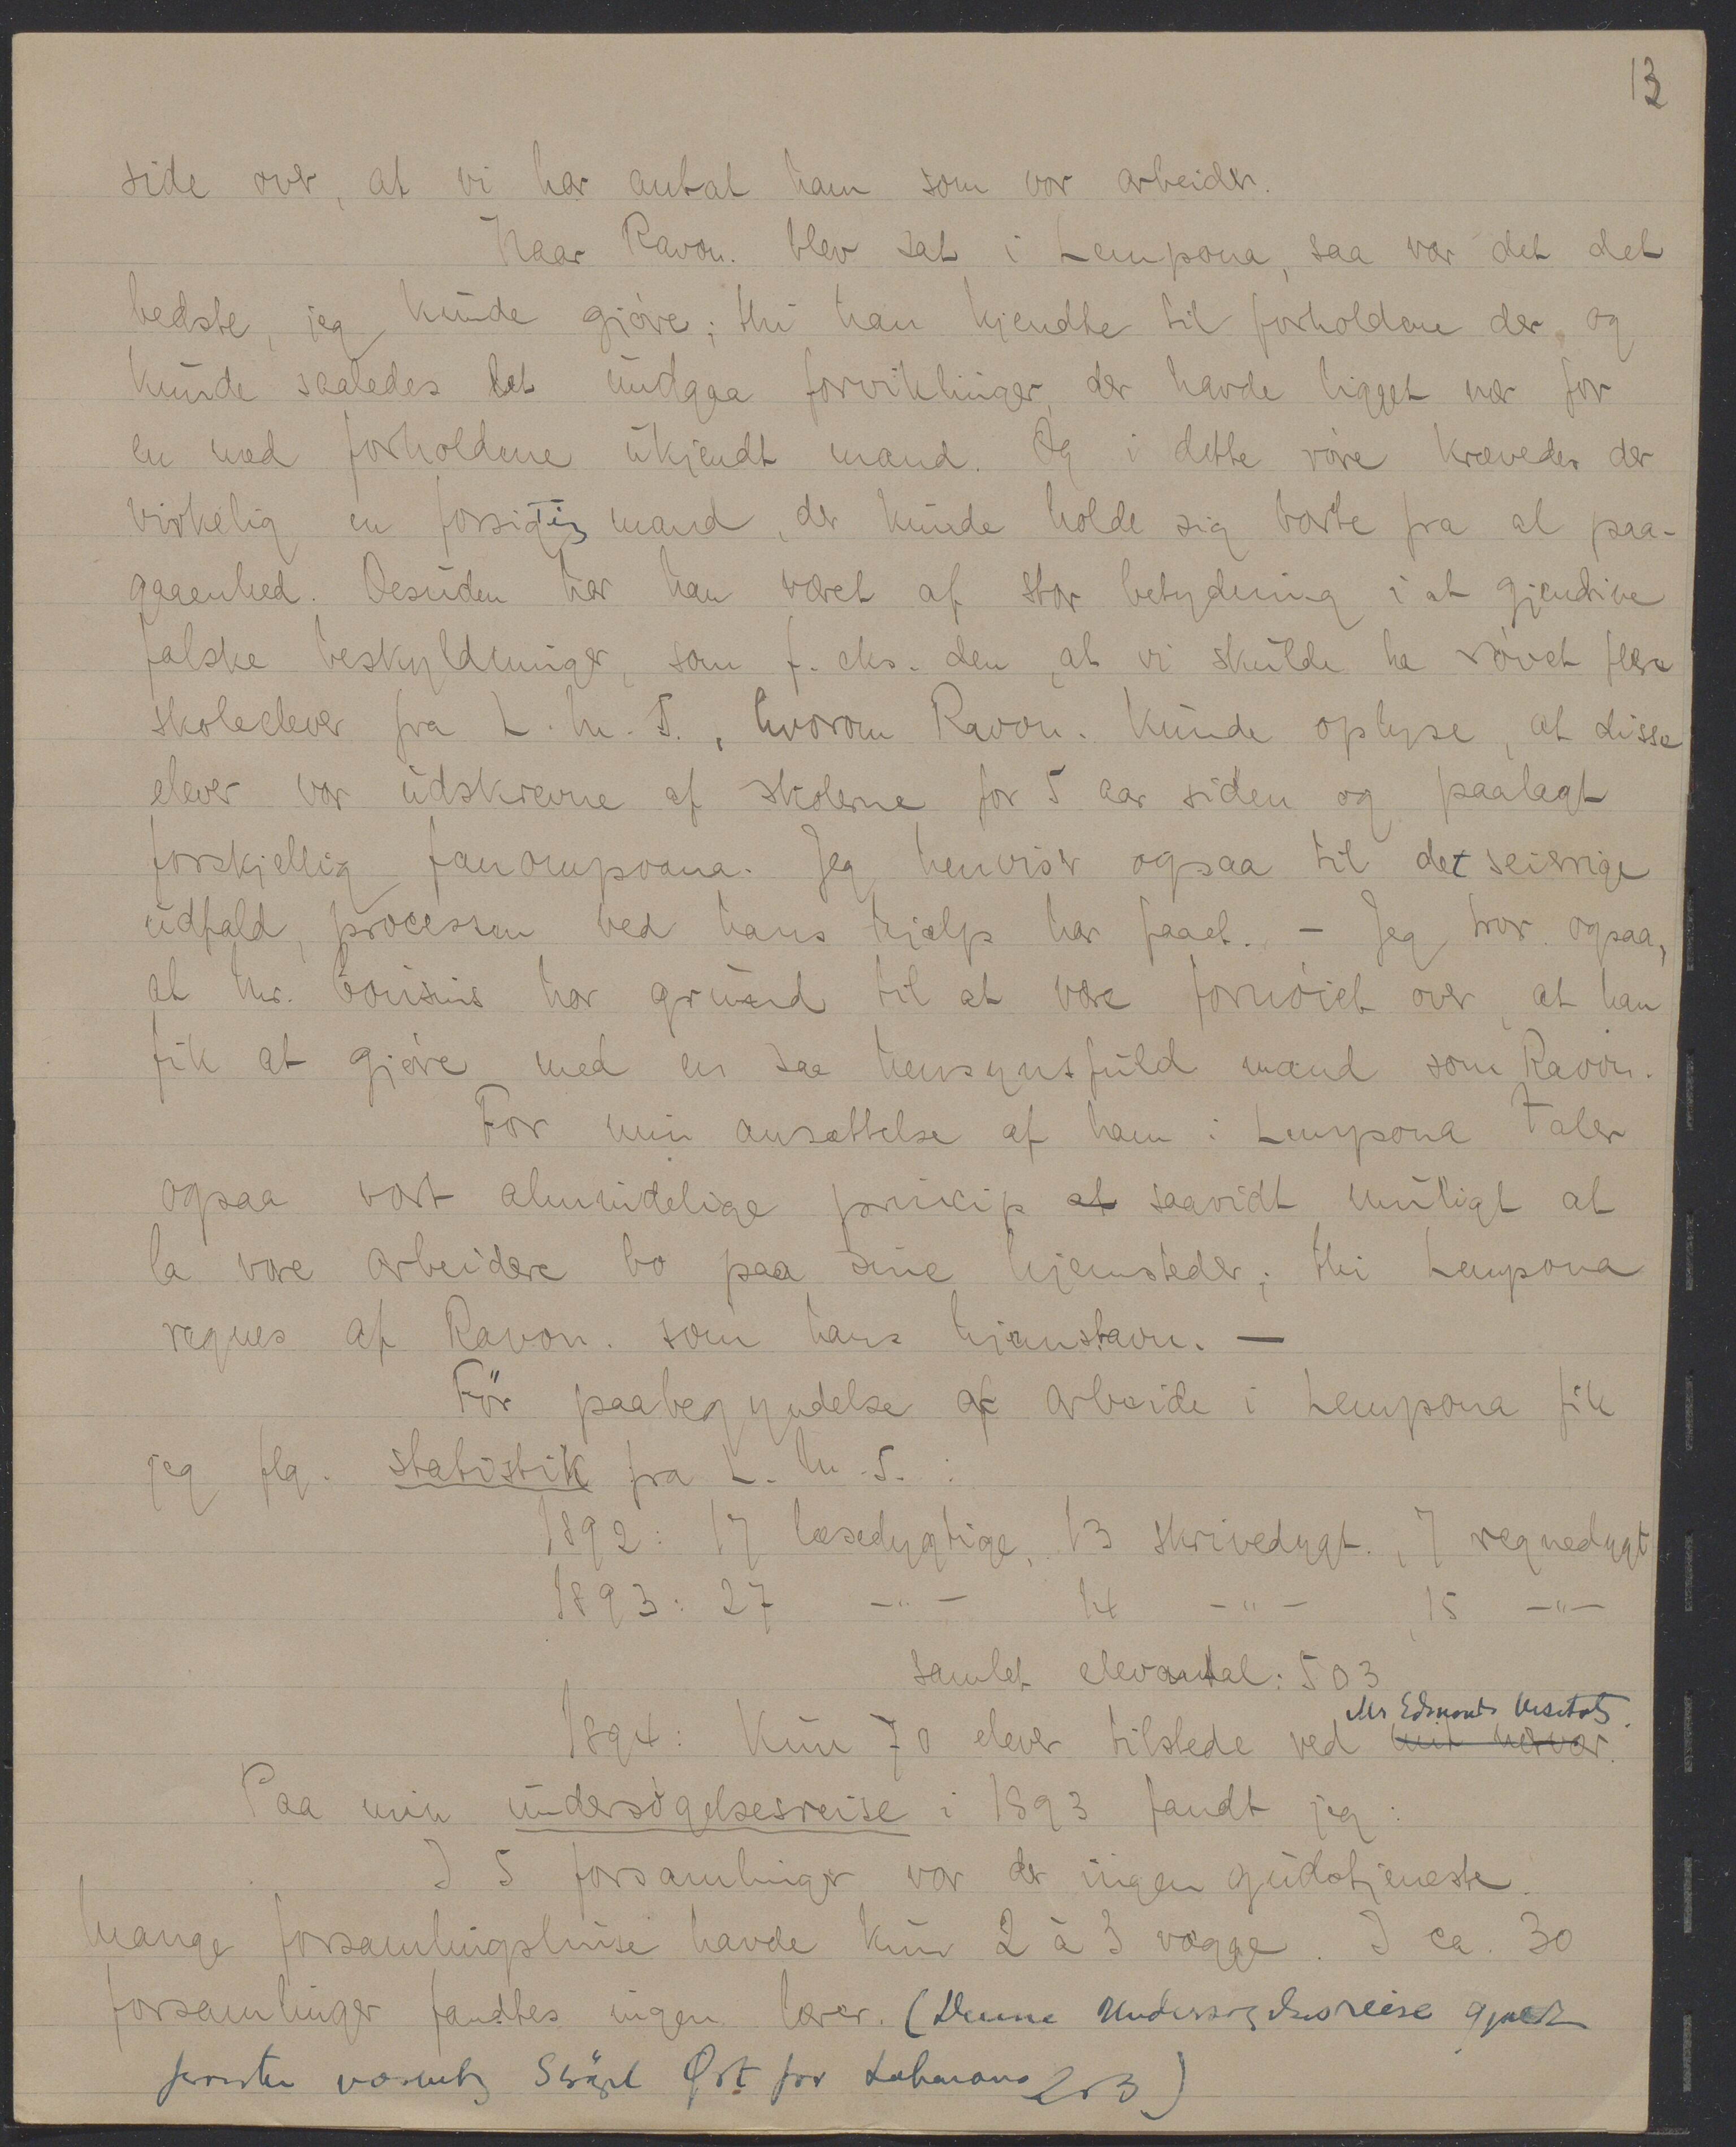 13
side over, at vi har antat ham som vor arbeider.
Naar Ravon. blev sat i Lempona, saa var det det
bedste, jeg kunde gjøre; thi han kjendte til forholdene der, og
kunde saaledes let undgaa forviklinger, der havde ligget nær for
en med forholdene ukjendt mand. Og i dette røre krævedes der
virkelig en forsigtig mand, der kunde holde sig borte fra al paa-
gaaenhed. Desuden har han været af stor betydning i at gjendrive
falske beskyldninger, som f. eks. den, at vi skulde ha røvet flere
skoleelever fra L. M. S., hvorom Ravon. kunde oplyse, at disse
elever var udskrevne af skolerne for 5 aar siden og paalagt
forskjellig fanompoana. Jeg henviser ogsaa til det seierrige
udfald, processen ved hans hjælp har faaet. — Jeg tror ogsaa,
at Mr. Cousins har grund til at være fornøiet over, at han
fik at gjøre med en saa hensynsfuld mand som Ravon.
For min ansættelse af ham i Lempona taler
ogsaa vort almindelige princip at saavidt muligt at
la vore arbeidere bo paa sine hjemsteder; thi Lempona
regnes af Ravon. som hans hjemstavn. —
Før paabegyndelse af arbeide i Lempona fik
jeg flg. statistik fra L. M. S. :
1892: 17 læsedygtige, 13 skrivedygt., 7 regnedygt
1893: 27 —"— 14 —"— , 15 —"—
samlet elevantal: 503
Mr Edmonds Visitats.
1894: Kun 70 elever tilstede ved mit nærvær.
Paa min undersøgelsesreise i 1893 fandt jeg :
I 5 forsamlinger var der ingen gudstjeneste.
Mange forsamlingshuse havde kun 2 à 3 vægge. I ca. 30
forsamlinger fandtes ingen lærer. (Denne Undersøgelsesreise
Øst for